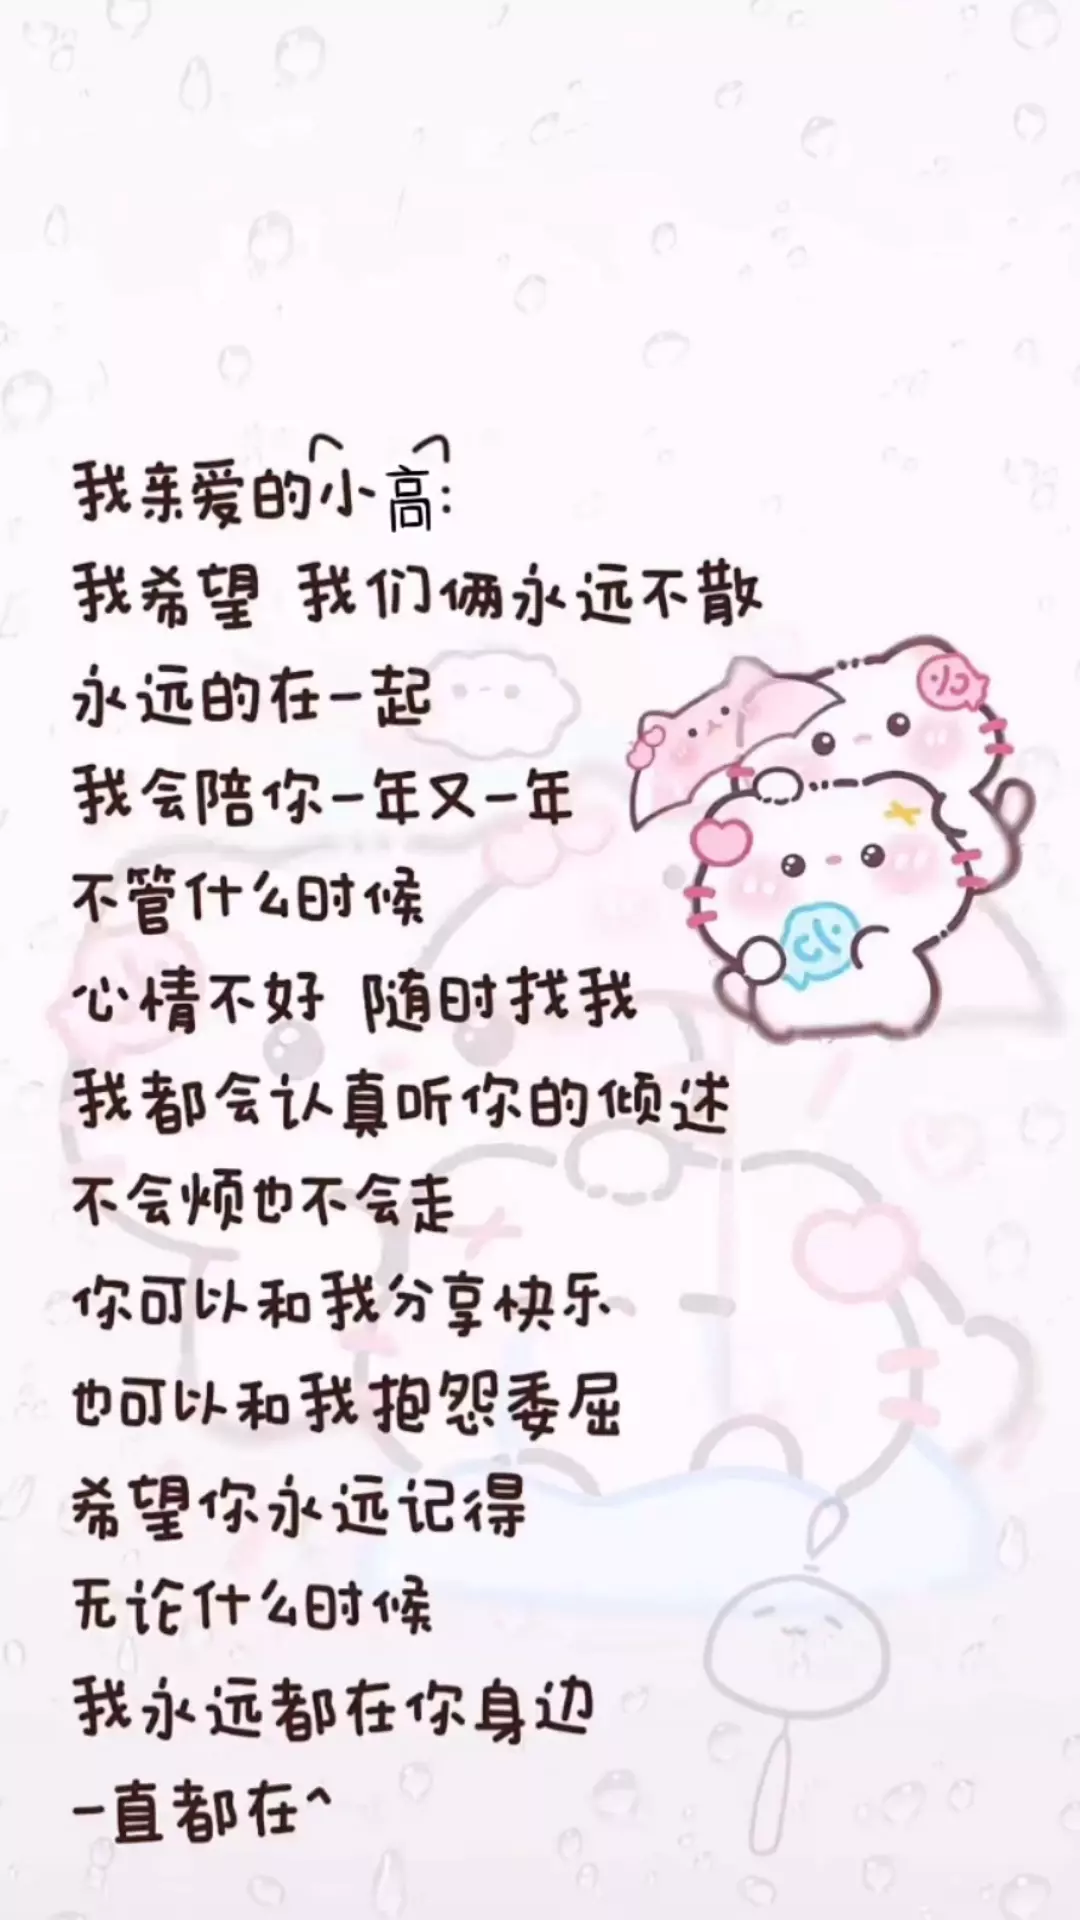 我亲爱的小高:
我希望 我们俩永远不散
永远的在一起
我会陪你一年又一年
不管什么时候
心情不好 随时找我
我都会认真听你的倾述
不会烦也不会走
你可以和我分享快乐
也可以和我抱怨委屈
希望你永远记得
无论什么时候
我永远都在你身边
一直都在^